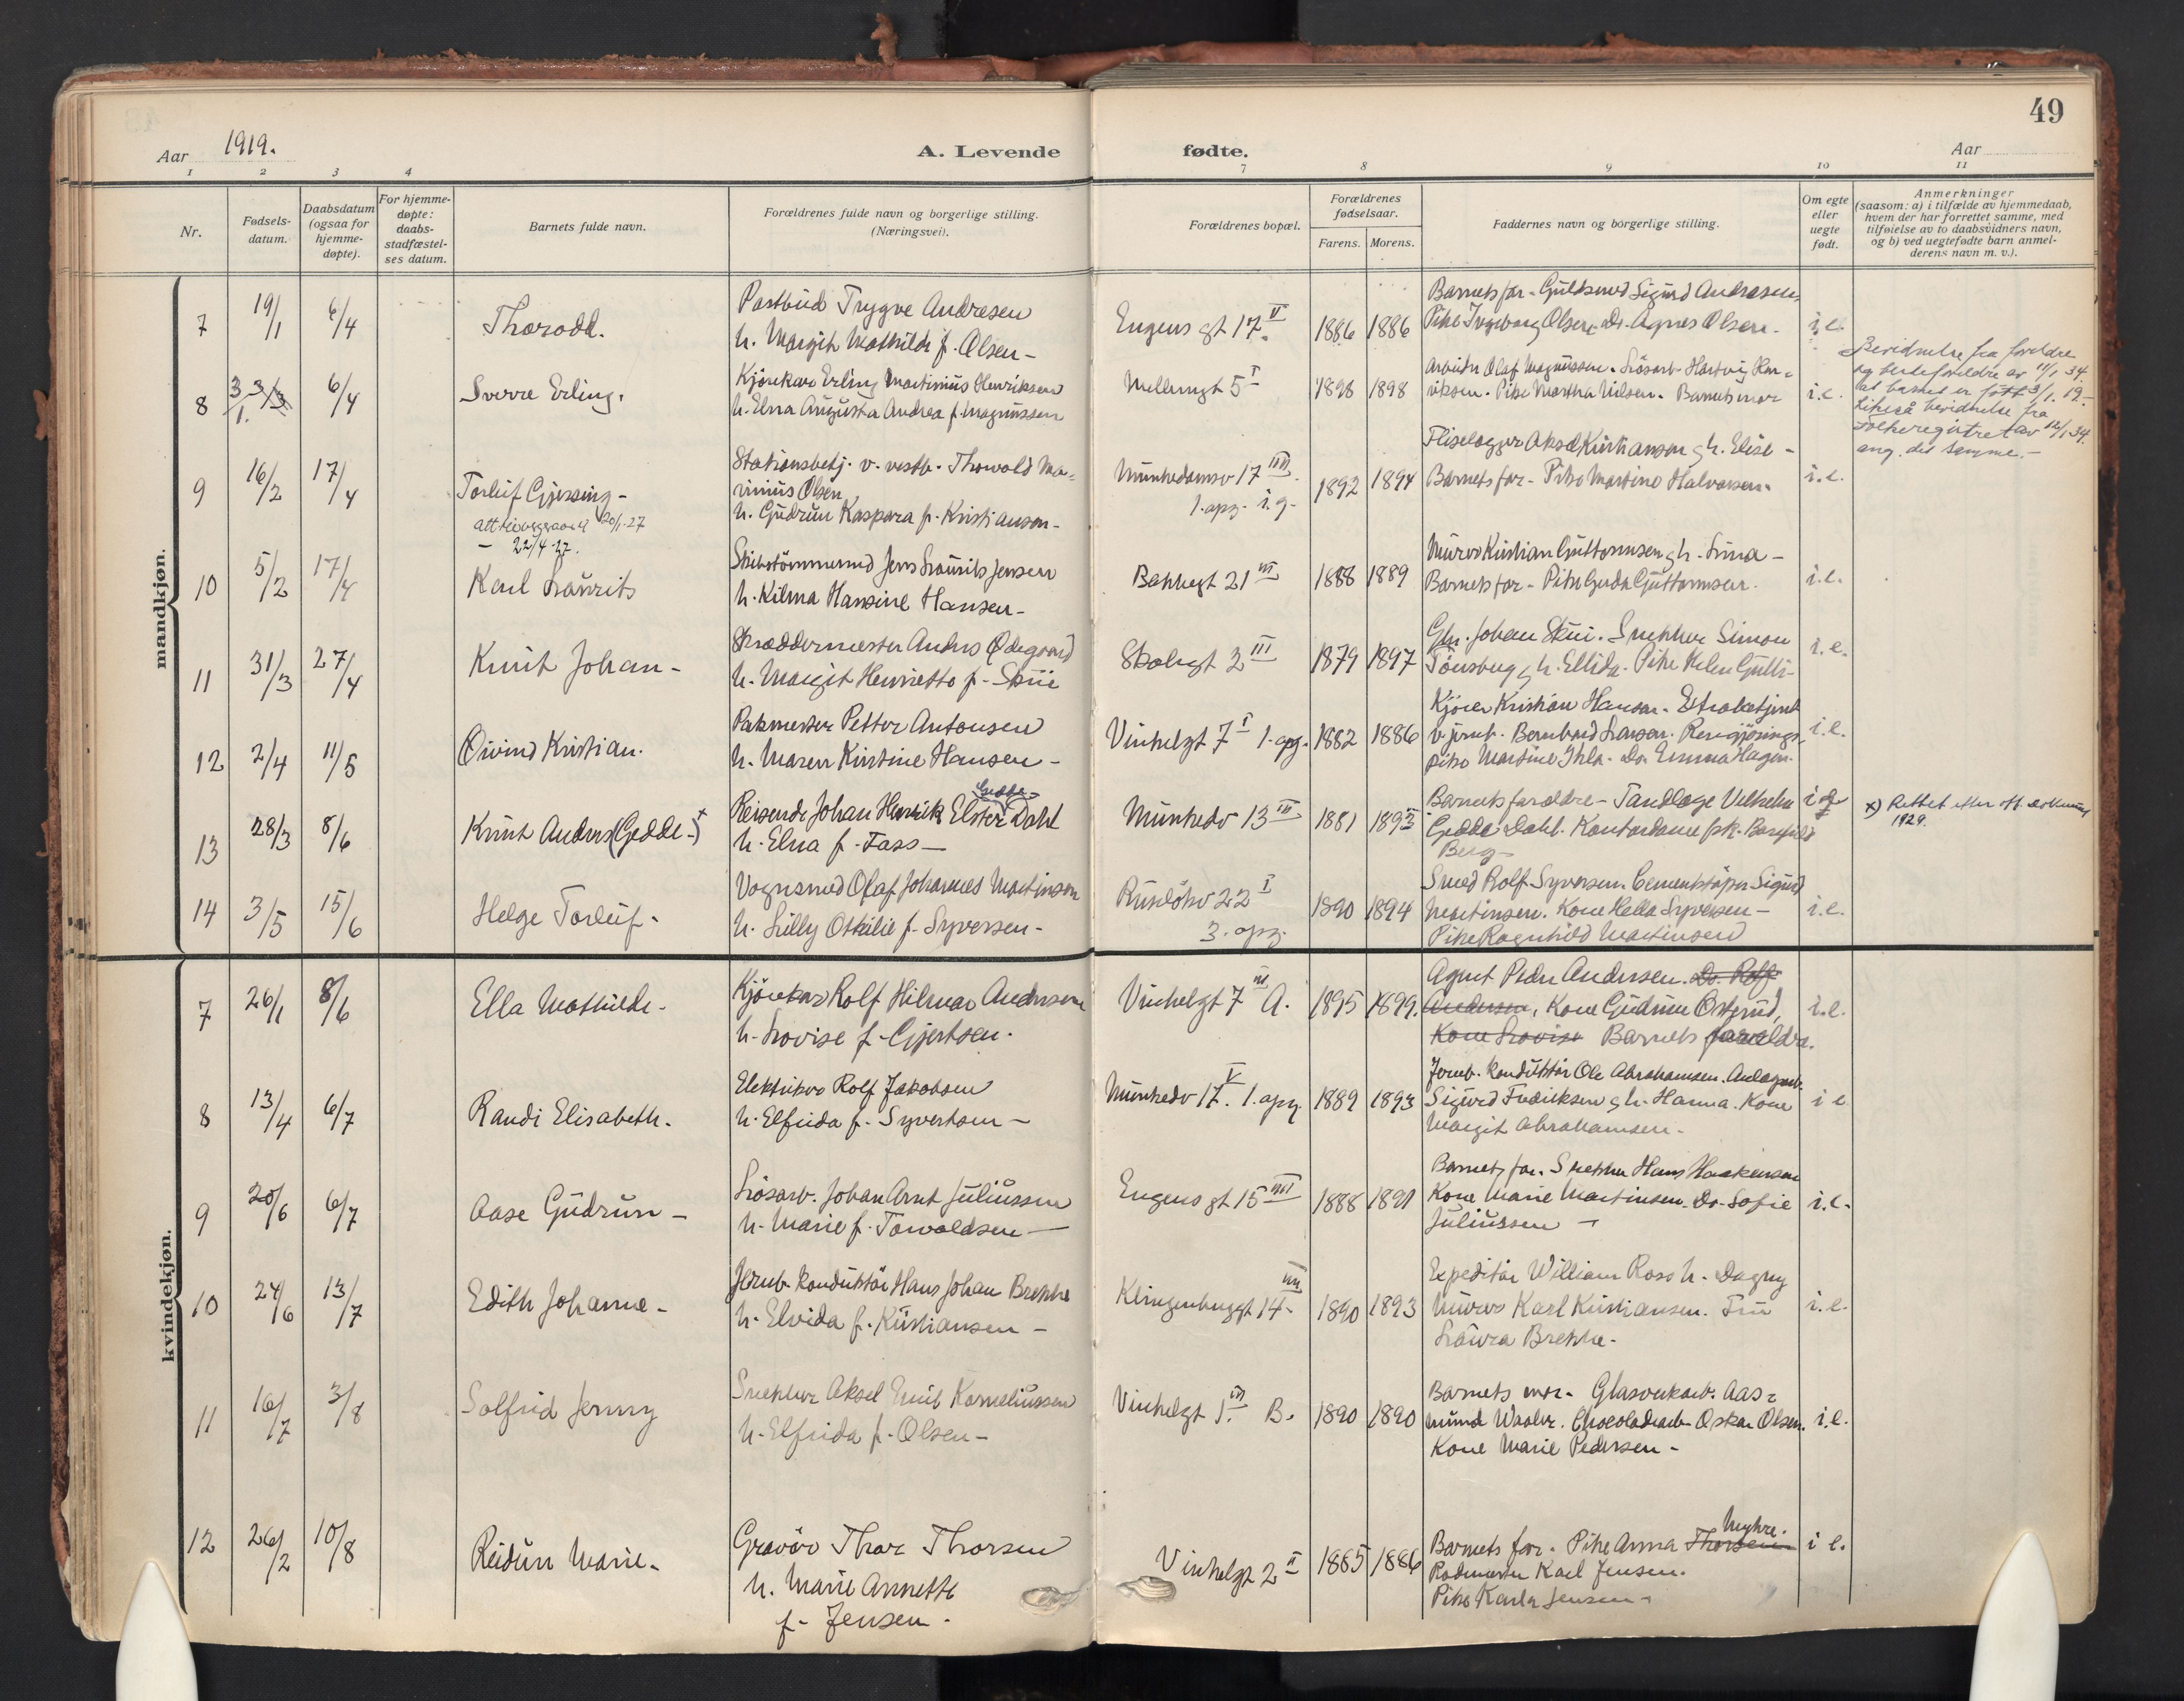 49
Aar 1919.
A. Levende fødte.
Aar
1 2 3 4 7 8 9 10 11
Nr.
Fødsels-
datum.
Daabsdatum
(ogsaa for
hjemme-
døpte).
For hjemme-
døpte:
daabs-
stadfæstel-
ses datum.
Barnets fulde navn.
Forældrenes fulde navn og borgerlige stilling.
(Næringsvei).
Forældrenes bopæl.
Forældrenes
fødselsaar.
Farens. Morens.
Faddernes navn og borgerlige stilling.
Om egte
eller
uegte
født.
Anmerkninger
(saasom: a) i tilfælde av hjemmedaab,
hvem der har forrettet samme, med
tilføielse av to daabsvidners navn,
og b) ved uegtefødte barn anmel-
derens navn m. v.).
mandkjøn.
7 19/1 6/4 Thorodd.
Postbud Trygve Andresen
h. Margit Mathilde f. Olsen -
Eugens gt 17 II
1886 1886
Barnets far - Guldsmed Sigurd Andresen,
Pike Ingeborg Olsen, Do. Agnes Olsen.
i.e.
8 3/1. 3/3 6/4 Sverre Erling.
Kjørekar Erling Martinius Henriksen
h. Elna Augusta Andrea f. Magnussen
Mellumgt 5 I
1898 1898
Arbeider Olaf Magnussen. Løsarb. Hartvig Hen-
riksen. Pike Martha Nilsen. Barnets mor
i.e.
Bevidnelse fra foreldre
og besteforeldre av 11/1 34.
at barnet er født 3/1. 19.-
Likeså bevidnelse fra
Folkeregistret av 12/1 34.
ang. det samme. -
9 16/2 17/4 Torleif Gjessing -
20/1-27
- 22/4-27.
Stationsbetj. v. vestb. Thorvald Ma-
rinius Olsen
h. Gudrun Kaspara f. Kristiansen -
Munkedamsv 17 III.
1. opg. i.g.
1892 1894
Fliselægger Aksel Kristiansen g h. Elise -
Barnets far - Pike Martine Halvorsen.
i.e.
10 5/2 17/4 Karl Laurits
Skibstømmermd Jens Laurits Jensen
h. Kilma Hansine Hansen -
Bakkegt 21 III
1888 1889
Murer Kristian Guttormsen g h. Lina -
Barnets far - Pike Gerda Guttormsen.
i.e.
11 31/3 27/4 Knut Johan -
Skræddermester Anders Ødegaard
h. Margit Henriette f. Skui
Skolegt 3 III
1879 1897
Gbr. Johan Skui. Snekker Simon
Tønsberg g h. Ellida. Pike Helen
i.e.
12 2/4 11/5 Øivind Kristian.
Pakmester Petter Antonsen
h. Maren Kristine Hansen -
Vinkelgt 7 I 1. opg.
1882 1886
Kjører Kristian Hansen. Extrabetjent
v. jernb. Bernhard Larsen. Rengjørings-
pike Martine Ihle. Do. Emma Hagen.
i.e.
13 28/3 8/6 Knut Anders (Gedde -) x
Gedde -
Reisende Johan Henrik Elster Dahl
h. Elna f. Fass -
Munkedv 13 III
1881 1893
Barnets forældre - Tandlæge Vilhelm
Gedde Dahl. Kontordame frk. Borghild
Berg -
i e
x) Rettet efter off. dokument
1929.
14 3/5 15/6 Helge Torleif -
Vognsmed Olaf Johannes Martinsen
h. Lilly Othilie f. Syversen -
Ruseløkv 22 I
3. opg.
1890 1894
Smed Rolf Syversen. Cementstøper Sigurd
Martinsen. Kone Hella Syversen -
Pike Ragnhild Martinsen
i.e.
kvindekjøn.
7 26/1 8/6 Ella Mathilde -
Kjørekar Rolf Hilmar Andersen
h. Lovise f. Gjertsen.
Vinkelgt 7 III A.
1895 1899.
Agent Peder Andersen. Do. Rolf
Andersen, Kone Gudrun Østerud,
Kone Lovise Barnets forældre.
i.e.
8 13/4 6/7 Randi Elisabeth.
Elektriker Rolf Jakobsen
h. Elfrida f. Syvertsen -
Munkedv 17 V. 1. opg.
1889 1893
Jernb. konduktør Ole Abrahamsen. Anlægsarb.
Sigurd Fredriksen g h. Hanna. Kone
Margit Abrahamsen -
i e
9 20/6 6/7 Aase Gudrun -
Løsarb. Johan Arnt Juliussen
h. Marie f. Torvaldsen -
Eugens gt 15 III
1888 1891
Barnets far. Snekker Hans Haakensen
Kone Marie Martinsen. Do. Sofie
Juliussen -
i.e.
10 24/6 13/7 Edith Johanne -
Jernb. konduktør Hans Johan Brekke
h. Elvida f. Kristiansen -
Klingenberggt 14 -
1890 1893
Expeditør William Ross h. Dagny
Murer Karl Kristiansen. Fru
Laura Brekke.
i.e.
11 16/7 3/8 Solfrid Jenny
Snekker Aksel Emil Korneliussen
h. Elfrida f. Olsen -
Vinkelgt 1. III B.
1890 1890
Barnets mor. Glasverkarb. Aas-
mund Waaler. Chocoladearb. Oskar Olsen.
Kone Marie Pedersen -
i.e.
12 26/2 10/8 Reidun Marie.
Gravør Thor Thorsen
h. Marie Annette
f. Jensen.
Vinkelgt 2 II
1885 1886
Myhre.
Barnets far. Pike Anna Thorsen
Rodemester Karl Jensen.
Pike Karla Jensen -
i e.